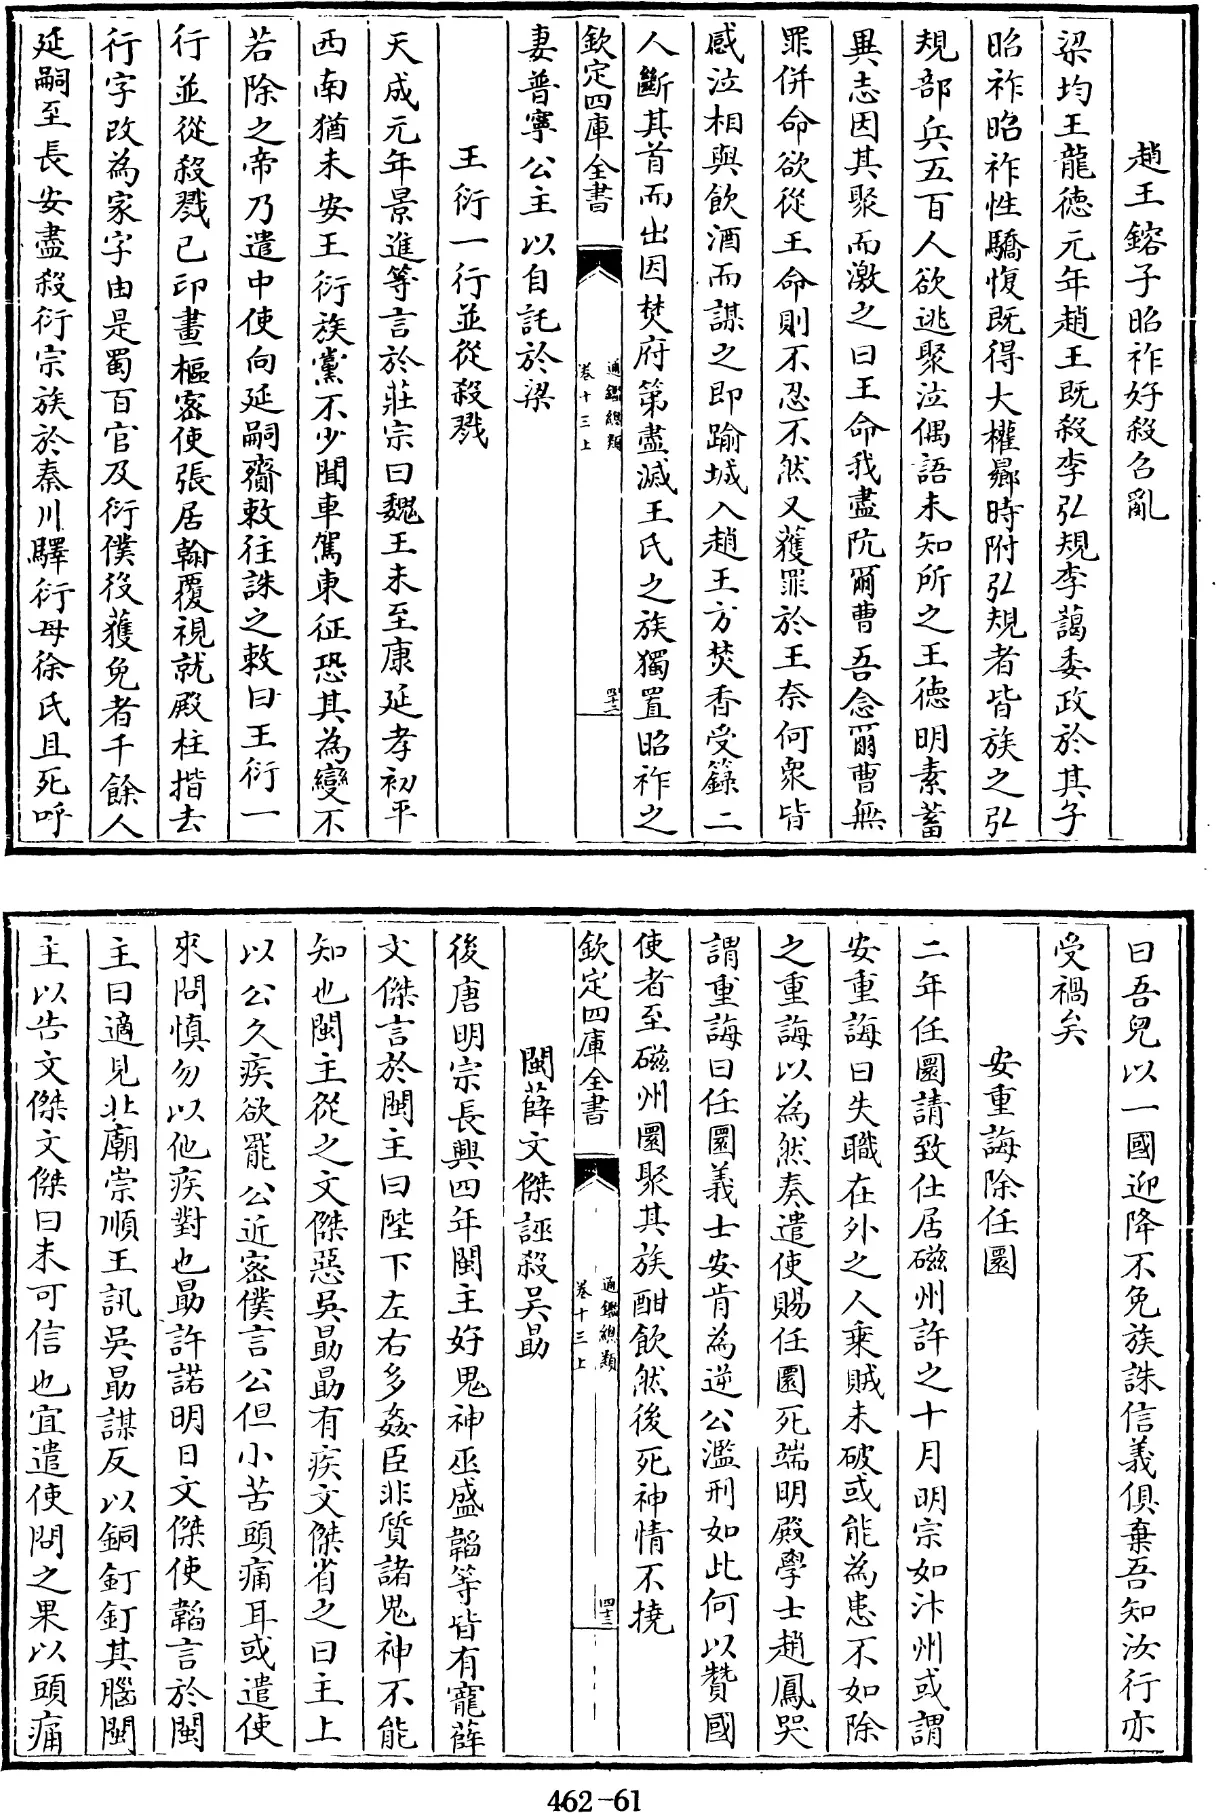 趙王鎔子昭祚好殺召亂
梁均王龍德元年趙王既殺李弘規李藹委政於其子
昭祚昭祚性驕愎既得大權曏時附弘規者皆族之弘
規部兵五百人欲逃聚泣偶語未知所之王德明素蓄
異志因其聚而激之曰王命我盡阬爾曹吾念爾曹無
罪併命欲從王命則不忍不然又獲罪於王奈何衆皆
感泣相與飲酒而謀之即踰城入趙王方焚香受籙二
人斷其首而出因焚府第盡滅王氏之族獨置昭祚之
欽定四庫全書
通鑑總類
卷十三上
四十二
妻普寧公主以自託於梁
王衍一行並從殺戮
天成元年景進等言於莊宗曰魏王未至康延孝初平
西南猶未安王衍族黨不少聞車駕東征恐其為變不
若除之帝乃遣中使向延嗣齎敕往誅之敕曰王衍一
行並從殺戮已印畫樞密使張居翰覆視就殿柱揩去
行字改為家字由是蜀百官及衍僕役獲免者千餘人
延嗣至長安盡殺衍宗族於秦川驛衍母徐氏且死呼
曰吾兒以一國迎降不免族誅信義俱棄吾知汝行亦
受禍矣
安重誨除任圜
二年任圜請致仕居磁州許之十月明宗如汴州或謂
安重誨曰失職在外之人乘賊未破或能為患不如除
之重誨以為然奏遣使賜任圜死端明殿學士趙鳳哭
謂重誨曰任圜義士安肯為逆公濫刑如此何以贊國
使者至磁州圜聚其族酣飲然後死神情不撓
欽定四庫全書
通鑑總類
卷十三上
四十三
閩薛文傑誣殺吳勗
後唐明宗長興四年閩主好鬼神巫盛韜等皆有寵薛
文傑言於閩主曰陛下左右多姦臣非質諸鬼神不能
知也閩主從之文傑惡吳勗勗有疾文傑省之曰主上
以公久疾欲罷公近密僕言公但小苦頭痛耳或遣使
來問慎勿以他疾對也勗許諾明日文傑使韜言於閩
主曰適見北廟崇順王訊吳勗謀反以銅釘釘其腦閩
主以告文傑文傑曰未可信也宜遣使問之果以頭痛
462-61